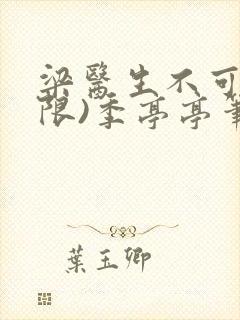 梁醫生不可
限)季亭亭筆
葉玉卿